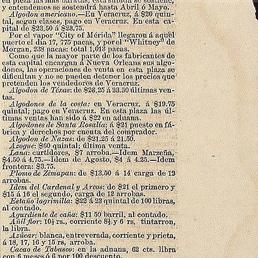 y entendemos se sostendrá hasta Abril ó Mayo.
Algodon americano.—En Veracruz, á $20 quintal, segun clases, pago en Veracruz. En esta capital de $23.50 á $23.75.
Por el vapor "City of Mérida" llegaron á aquel
puerto el dia 17, 775 pacas, y por el "Whitney" de
Morgan, 238 pacas: total 1,013 pacas.
Como que la mayor parte de los fabricantes de
esta capital encargan á Nueva Orleans sus algodones,
las operaciones de venta en esta plaza se
dificultan y no se pueden detener los precios que
pretenden los vendedores de Veracruz.
Algodon de Téxas: de $23.25 á 23.50 últimas ventas.
Algodones de la costa: en Veracruz, á $19.75
quintal; pago en Veracruz. En esta plaza las últimas
ventas han sido á $22 en aduana.
Algodones de Santa Rosalía: á $21 puesto en fábrica
y derechos por cuenta del comprador.
Algodon de Nazas: de $21.25 á $21.50.
Azogue: $60 quintal; última venta.
Lana: surtidores, $7 arroba.—Idem Marzeña,
$4.50 á 4.75.—Idem de Agosto, $4 á 4.25.—Idem
frontera: $3.75.
Plomo de Zimapan: de $13.50 á 14 carga de 12
arrobas.
Idem del Cardenal y Arcos: de $21 el primero y
$15 á 16 el segundo, carga de 12 arrobas.
Estaño lagrimilla: $22 á 23 quintal de 100 libras,
al contado.
Aguardiente de caña: $11 50 barril, al contado.
Añil flor: 10½ rs., corriente 8½ y 6 rs., tintarron,
la libra.
Azúcar: blanca, entreverada, corriente y prieta,
á 18, 17, 16 y 15 rs. arroba.
Cacao de Tabasco: en la aduana, 62 cts. libra
con 5 meses ó 6 por 100 descuento.